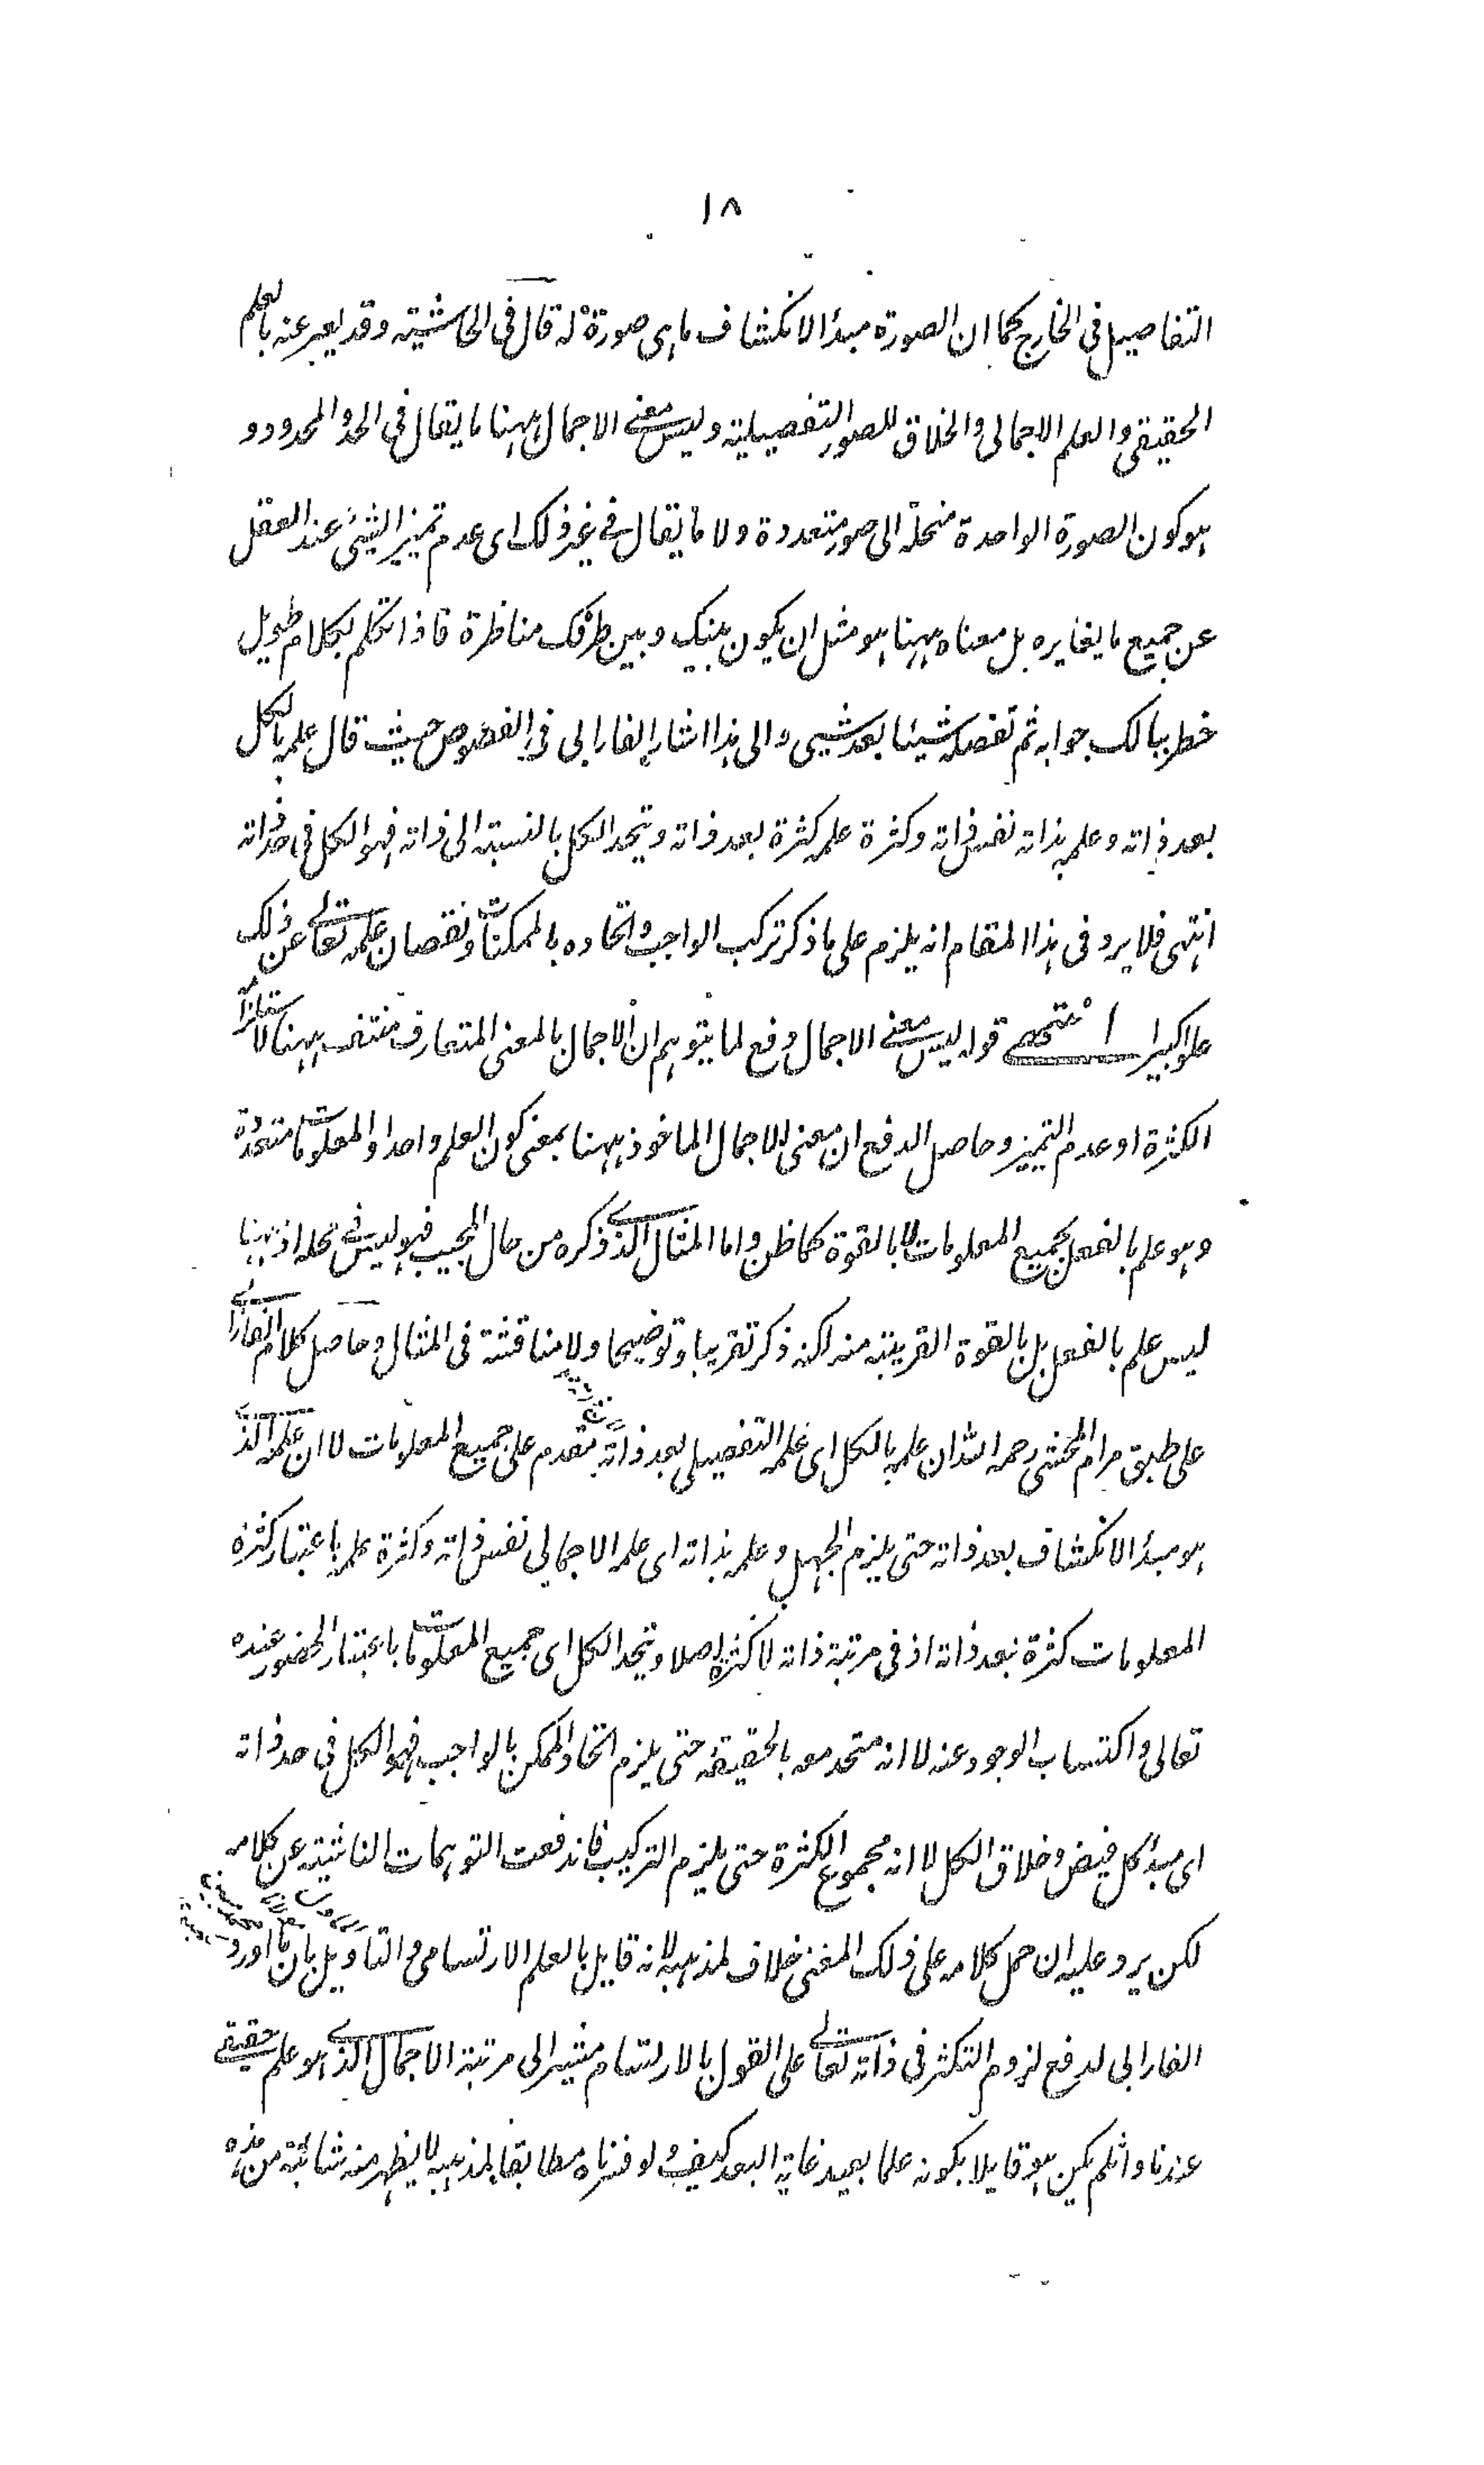 ١٨
التفاصيل فى الخارج كما ان الصورة مبدأ الانكشاف ما هى صورة له قال فى الحاشية وقد يعبر عنه بالعلم
الحقيقى والعلم الاجمالى والخلاق للصور التفصيلية وليس معنى الاجمال ههنا ما يقال فى الحد والمحدود و
هو كون الصورة الواحدة منحلة الى صور متعددة ولا ما يقال فى غير ذلك اى عدم تميز الشيئ عند العقل
عن جميع ما يغايره بل معناه ههنا هو مثل ان يكون بينك وبين طرفك مناظرة فاذا تكلم بكلام طويل
خطر ببالك جوابه ثم تفصله شيئا بعد شيىء والى هذا اشار الفارابى فى الفصوص حيث قال علمه بالكل
بعد ذاته وعلمه بذاته نفس ذاته وكثرة علمه كثرة بعد ذاته ويتحد الكل بالنسبة الى ذاته فهو الكل فى حد ذاته
انتهى فلا يرد فى هذا المقام انه يلزم على ما ذكر تركب الواجب واتحاده بالممكنات ونقصان علمه تعالى عن ذلك
علوا كبيرا انتهى قوله ليس معنى الاجمال دفع لما يتوهم ان الاجمال بالمعنى المتعارف منتف ههنا لاستلزامه
الكثرة او عدم التميز وحاصل الدفع ان معنى الاجمال الماخوذ ههنا بمعنى كون العلم واحدا والمعلومات متعددة
وهو علم بالفعل بجميع المعلومات لا بالقوة كما ظن واما المثال الذى ذكره من حال المجيب فهو ليس فى محله اذ ههنا
ليس علم بالفعل بل بالقوة القريبة منه لكنه ذكر تقريبا وتوضيحا ولا مناقشة فى المثال وحاصل كلام الفارابى
على طبق مرام المحشى رحمه الله ان علمه بالكل اى علمه التفصيلى بعد ذاته بتقدم على جميع المعلومات لا ان علمه الذى
هو مبدأ الانكشاف بعد ذاته حتى يلزم الجهل وعلمه بذاته اى علمه الاجمالى نفس ذاته وكثرة علمه باعتبار كثرة
المعلومات كثرة بعد ذاته اذ فى مرتبة ذاته لا كثرة اصلا ويتحد الكل اى جميع المعلومات باعتبار الحضور عنده
تعالى واكتساب الوجود عنه لا انه متحد معه بالحقيقة حتى يلزم اتحاد الممكن بالواجب فهو الكل فى حد ذاته
اى مبدأ كل فيض وخلاق الكل لا انه مجموع الكثرة حتى يلزم التركيب فاندفعت التوهمات الناشئة عن كلامه
لكن يرد عليه ان حمل كلامه على ذلك المعنى خلاف لمذهبه لانه قايل بالعلم الارتسامى والتاويل بان ما اورد
الفارابى لدفع لزوم التكثر فى ذاته تعالى على القول بالارتسام مشير الى مرتبة الاجمال الذى هو علم حقيقى
عندنا وان لم يكن هو قايلا بكونه علما بعيد غاية البعد كيف ولو فسرناه مطابقا لمذهبه لا يظهر منه شائبة من هذه